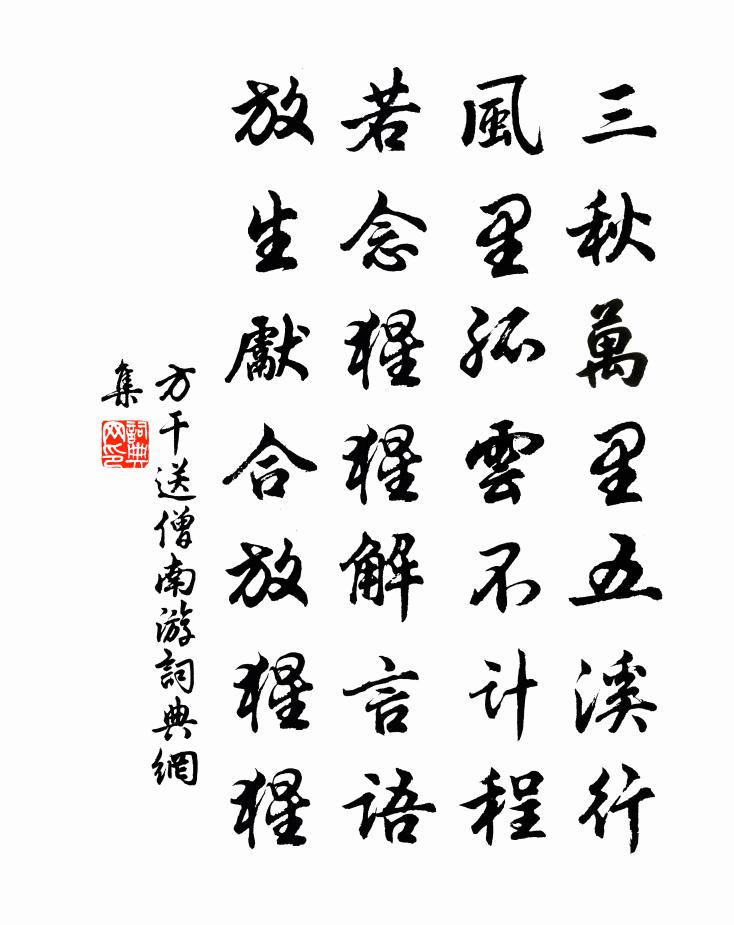 三秋萬里五溪行
風里孤雲不計程
若念猩猩解言語
放生獻合放猩猩
方干送僧南游詞典網
集
詞典
网印